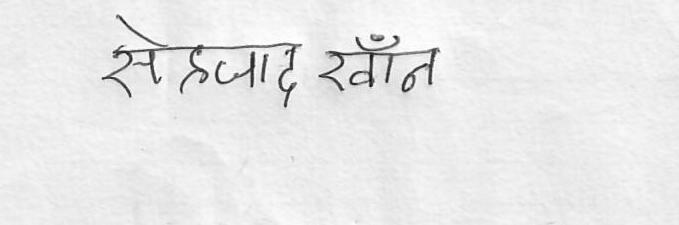 सेहजाद खाँन